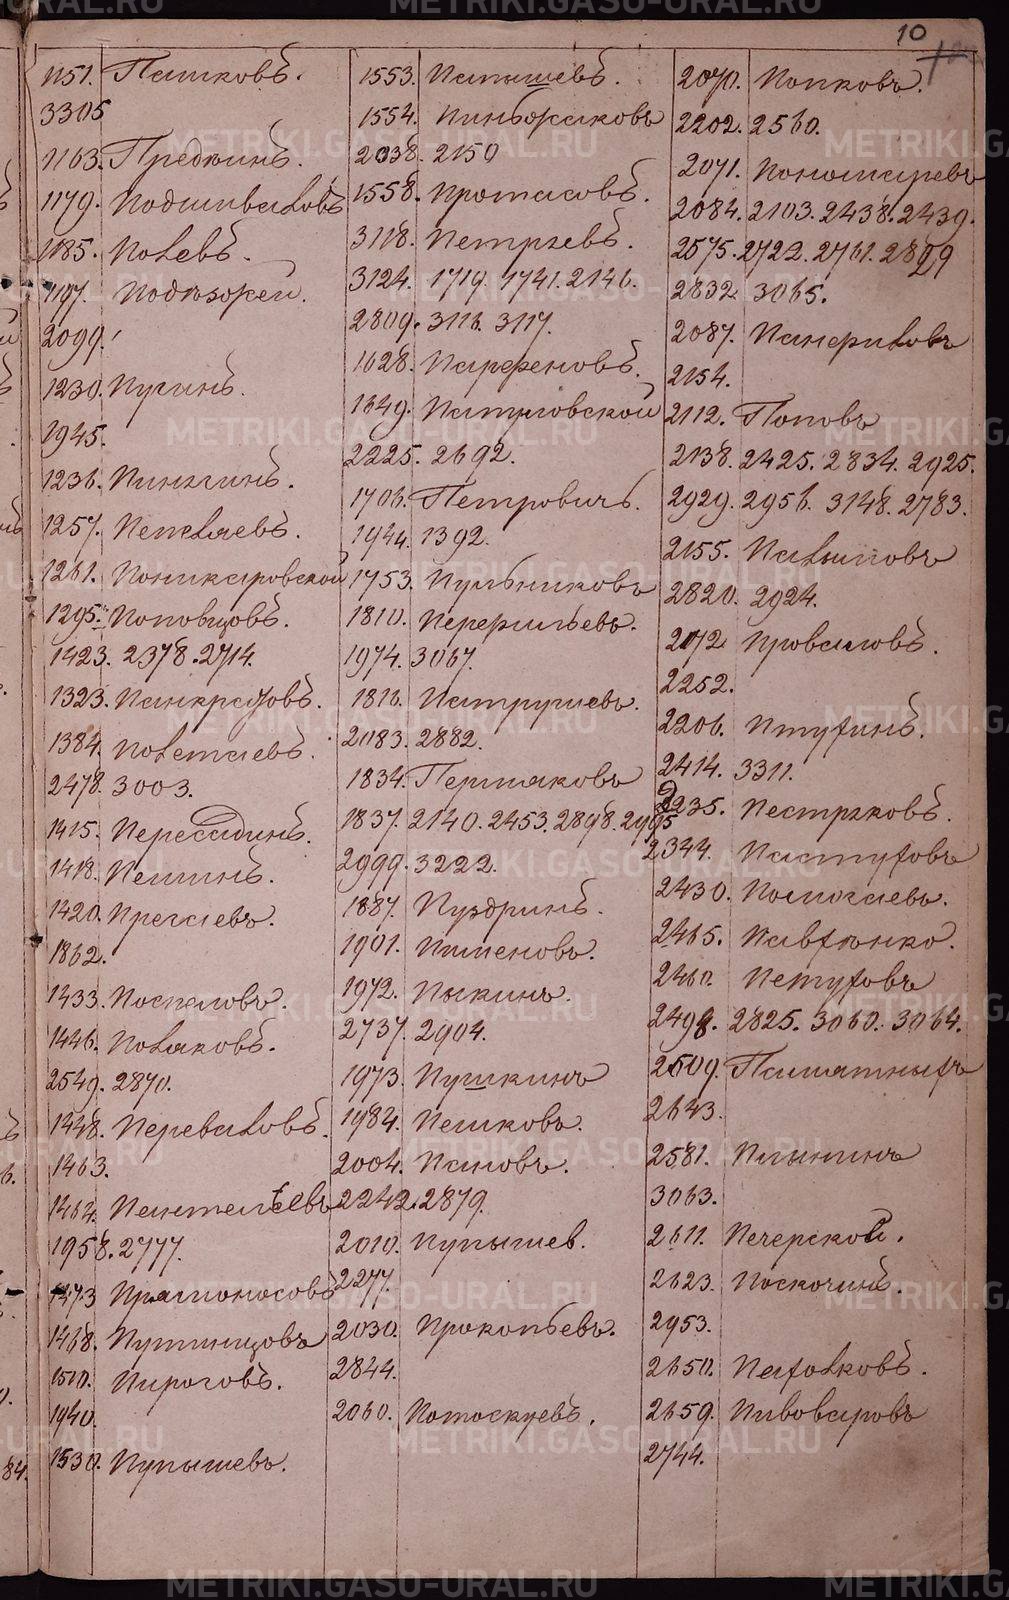 10
1151. Пашковъ.
3305
1163. Предкинъ.
1179. Подшиваловъ
1185. Полевъ.
1197. Подъзоркой.
2099.
1230. Пугинъ.
1945.
1236. Пинягинъ.
1257. Пепеляевъ.
1261. Поникаровской
1295. Поповцовъ.
1423. 2378. 2714.
1323. Панкратовъ.
1384. Полетаевъ.
2478. 3003.
1415. Пересадинъ.
1418. Пешинъ.
1420. Пргаевъ.
1862.
1433. Поспеловъ.
1446. Поляковъ.
2549. 2870.
1448. Переваловъ.
1463.
1464. Пантелеевъ
1958. 2777.
1473 Прямоносовъ
1468. Путинцовъ
1510. Пироговъ.
1940.
1530. Пупышевъ.
1553. Папышевъ.
1554. Пиньжаковъ
2038. 2150
1558. Протасовъ.
3118. Петряевъ.
3124. 1719. 1741. 2146.
2809. 3116. 3117.
1628. Парфеновъ.
1649. Патруковской
2225. 2692.
1706. Петровичъ.
1944. 1392.
1753. Пульниковъ
1810. Перфильевъ.
1974. 3067.
1816. Патрушевъ.
2083. 2882.
1834. Пермяковъ
1837. 2140. 2453. 2898. 2995
2999. 3222.
1887. Пуздринъ.
1901. Пименовъ.
1972. Пыкинъ.
2737. 2904.
1973. Пушкинъ
1984. Пешковъ.
2004. Пановъ.
2242. 2879.
2010. Пупышев.
2277.
2030. Прокопьевъ.
2844.
2060. Потоскуевъ.
2070. Попковъ.
2202. 2560.
2071. Пономаревъ
2084. 2103. 2438. 2439.
2575. 2722. 2761. 2829
2832. 3065.
2087. Панфиловъ
2154.
2112. Поповъ
2138. 2425. 2834. 2925.
2929. 2956. 3148. 2783.
2155. Павыповъ
2820. 2924.
2172. Проваловъ.
2252.
2206. Птухинъ.
2414. 3311.
2235. Пестряковъ.
2344. Пастуховъ
2430. Помогаевъ.
2465. Павленко.
2460. Петуховъ
2498. 2825. 3060. 3064.
2509. Памятныхъ
2643.
2581. Панынинъ
3063.
2611. Печерской.
2623. Поскочинъ.
2953.
2650. Пахолковъ.
2659. Пивоваровъ
2744.
METRIKI.GASO-URAL.RU